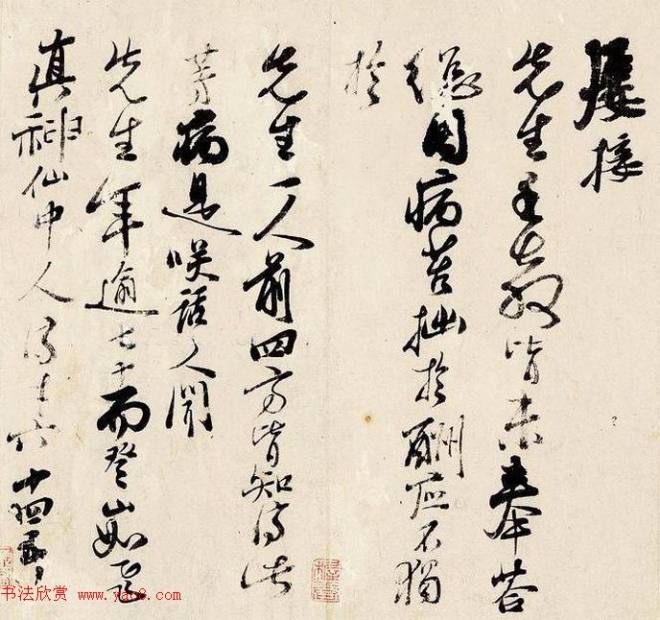 屢接
先生手教皆未奉答
總因病苦拙於酬應不獨
於
先生一人前四方皆知濟此
等病是咲話人聞
先生年逾七十而登山如飛
真神仙中人濟才六十四五
书法欣赏 www.yac8.com